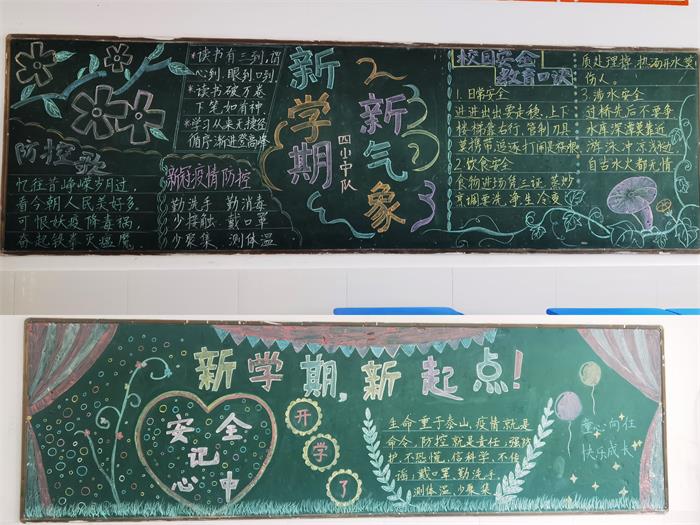 *读书有三到,谓
心到、眼到、口到
*读书破万卷
下笔如有神
*学习从来无捷径
循序渐进登高峰
防控歌
忆往昔峥嵘岁月过,
看今朝人民美好多,
可恨妖疫降毒祸,
奋起铁拳灭瘟魔
新冠疫情防控
勤洗手 勤消毒
少接触 戴口罩
少聚集 测体温
新学期
2023
新气象
四小中队
校园安全
教育口诀
1.日常安全
进进出出要走稳,上下
楼梯靠右行,管制刀具
莫携带,追逐打闹是祸根
2.饮食安全
食物进场凭三证,蒸炒
烹调要洗净生冷变
质处理掉,热汤开水莫
伤人。
3.涉水安全
过桥先后不要争
水库深潭莫靠近
游泳冲凉浅处
自古水火都无情
新学期,新起点!
安全
记
心中
开
学
了
生命重于泰山,疫情就是
命令,防控就是责任,强防
护,不恐慌,信科学,不传
谣,戴口罩,勤洗手,
测体温,少聚集
童心向往
快乐成长